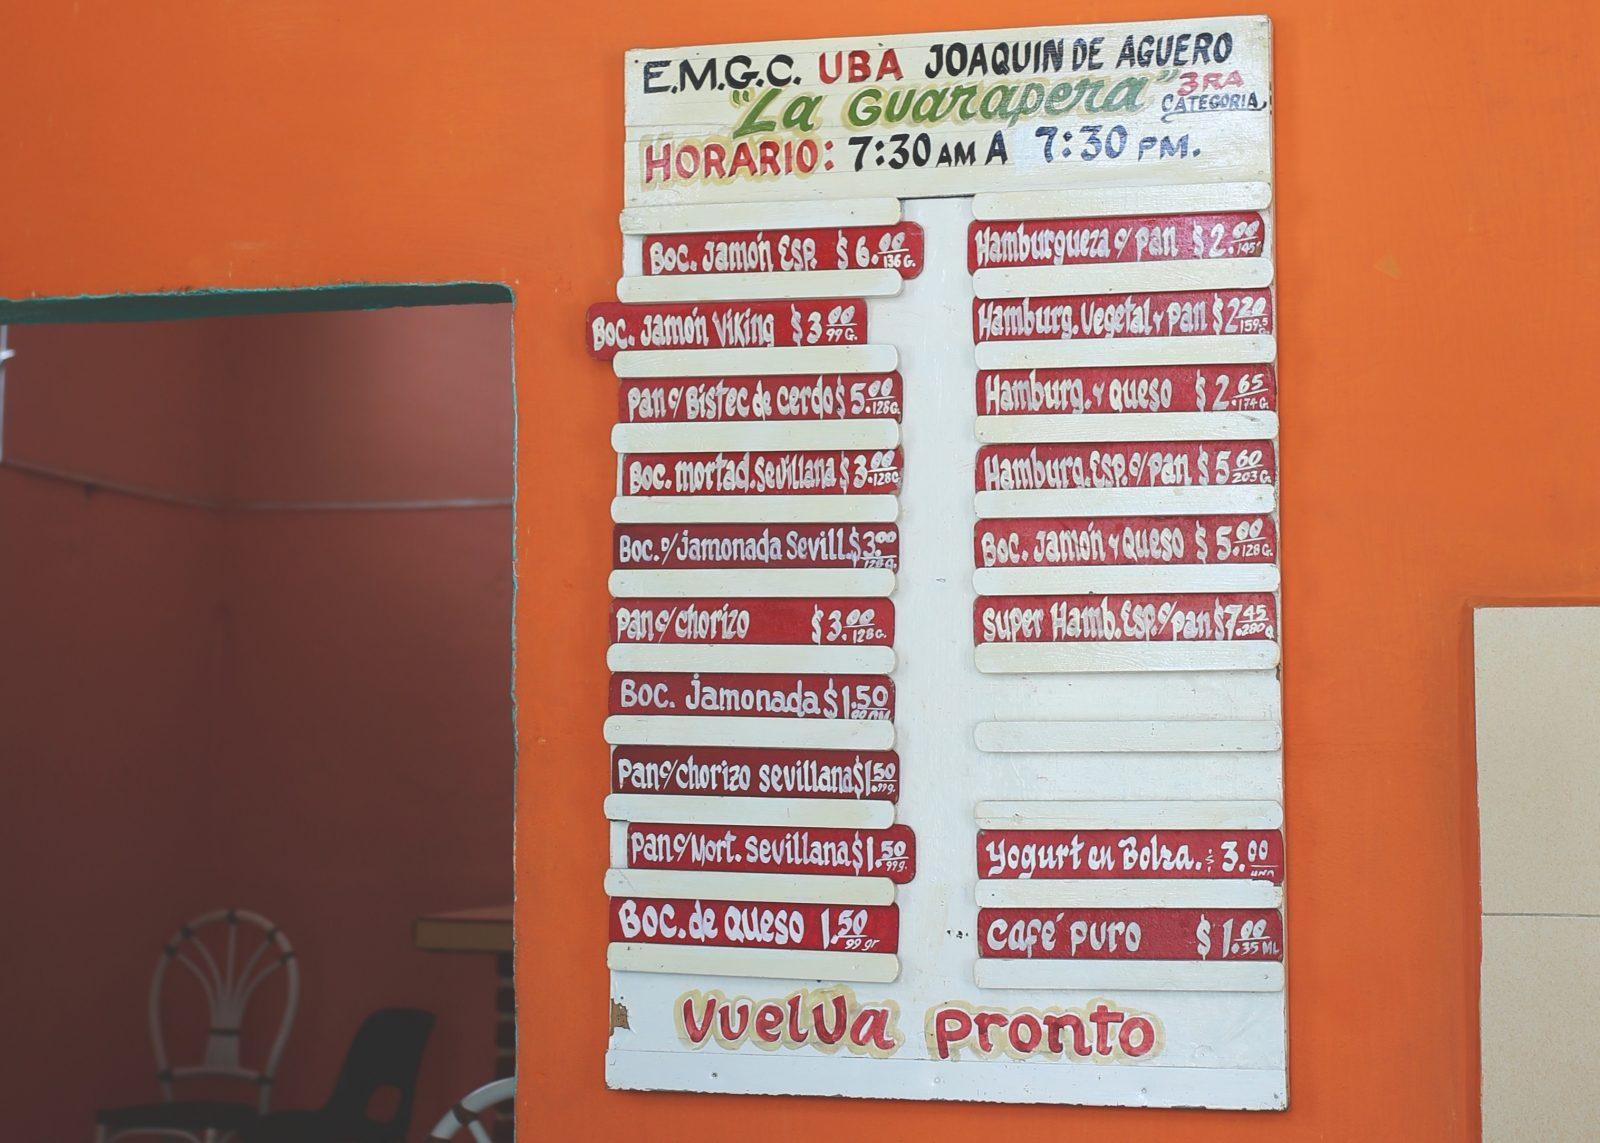 E.M.G.C. UBA JOAQUIN DE AGUERO
"La Guarapera" 3RA CATEGORIA
HORARIO: 7:30 AM A 7:30 PM.
Boc. Jamón Esp. $ 6.00 136 G.
Boc. Jamón Viking $3.00 99 G.
Pan c/ Bistec de cerdo $ 5.00 128 G.
Boc. mortad. Sevillana $ 3.00 128 G
Boc. c/ jamonada Sevill. $3.00 128 G.
Pan c/ chorizo $3.00 128 G.
Boc. Jamonada $1.50
Pan c/ chorizo sevillana $1.50 99g.
Pan c/ Mort. sevillana $1.50 99g.
Boc. de Queso 1.50 99 gr
Hamburgueza c/ pan $ 2.00 145
Hamburg. Vegetal y pan $ 2.20 159.5
Hamburg. y queso $ 2.65 174 G.
Hamburg. Esp. c/ pan $ 5.60 203 G
Boc. Jamón y Queso $ 5.00 128 G.
Super Hamb. Esp. c/ pan $7.45 280 G
Yogurt en Bolza. $ 3.00 uno
Café puro $ 1.00 35 ML
Vuelva pronto